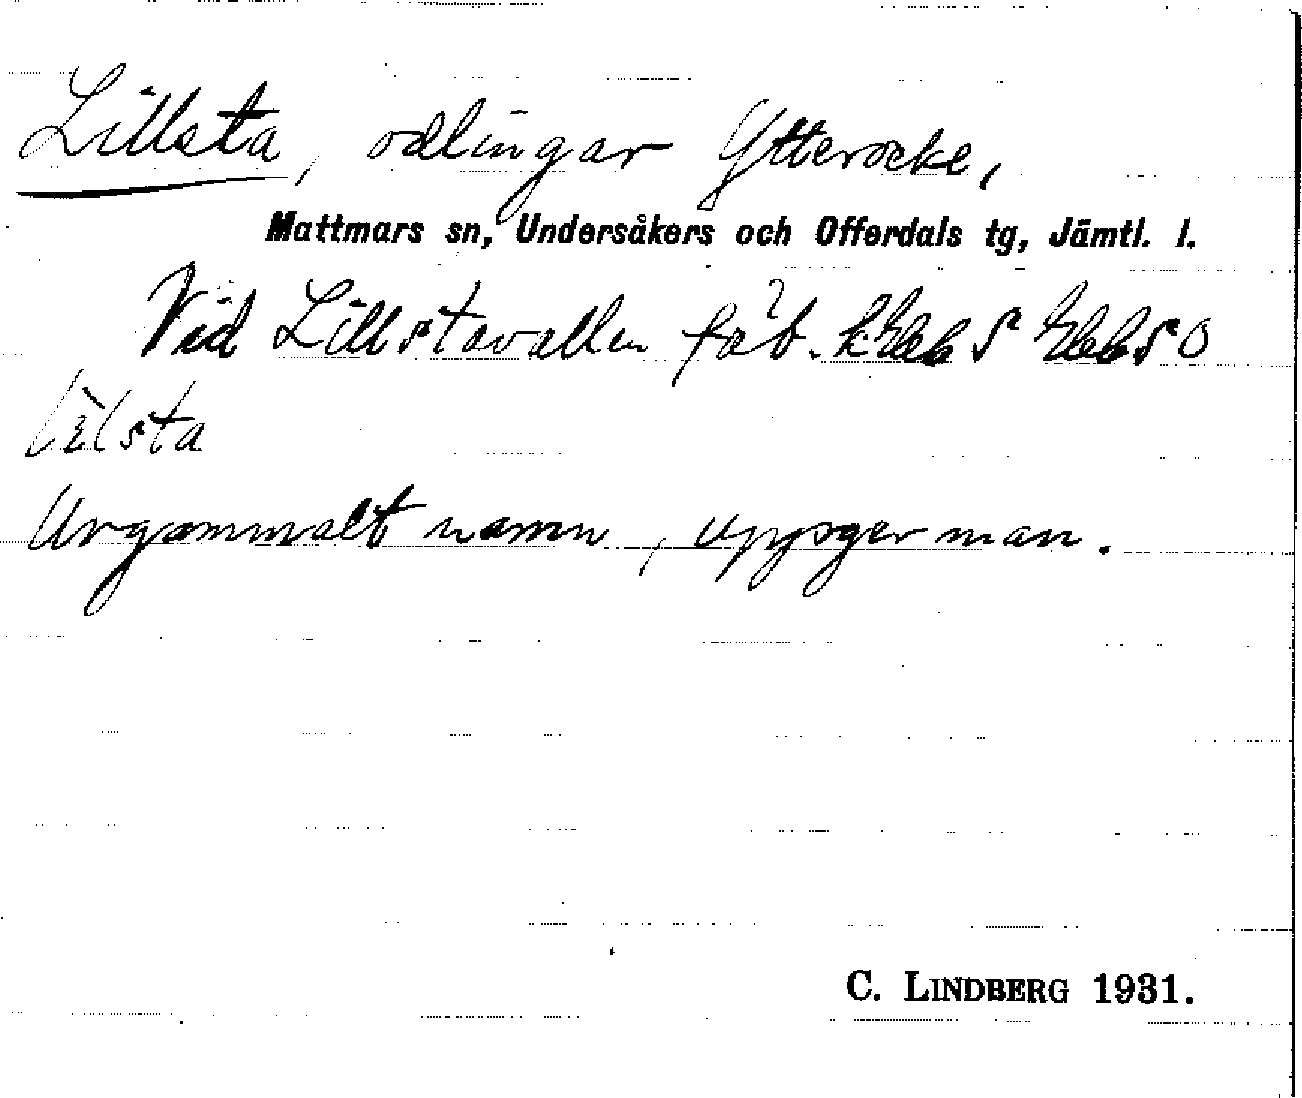 Lillsta, odlingar Ytterocke,
Mattmars sn, Undersåkers och Offerdals tg, Jämtl. l.
Vid Lillstavallen fäb.
Urgammalt namn, uppger man.
C. LINDBERG 1931.